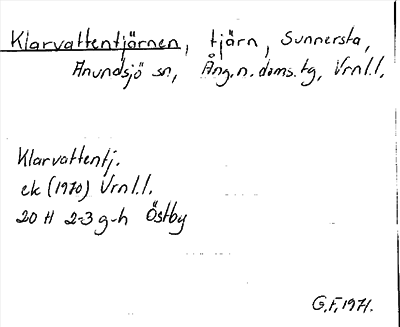 Klarvattentjärnen, tjärn, Sunnersta,
Anundsjö sn, Ång.n.doms.tg, Vrnl.l.
Klarvattentj.
ek (1970) Vrnl.l.
20 H 2-3 g-h Östby
G.F. 1971.